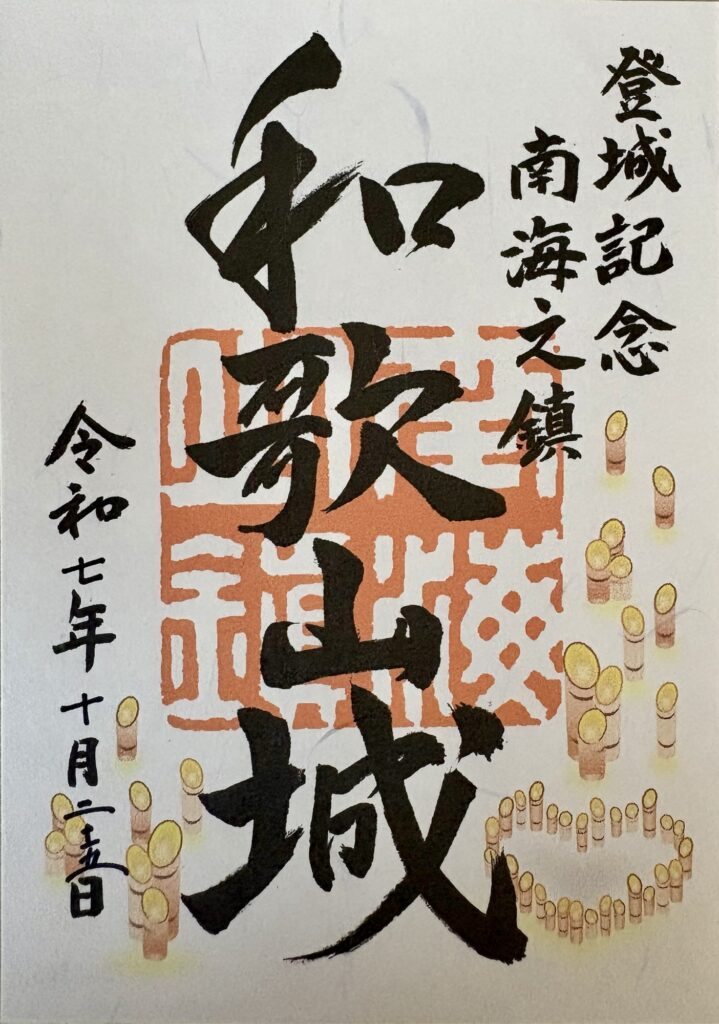 登城記念
南海之鎮
和歌山城
令和七年十月二十五日